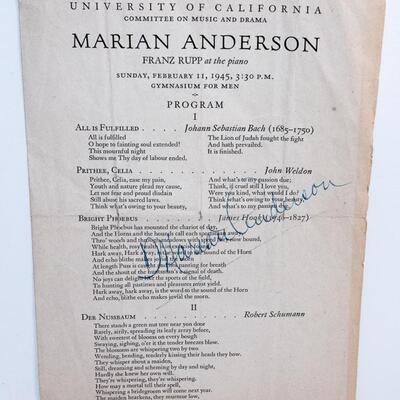 UNIVERSITY OF CALIFORNIA
COMMITTEE ON MUSIC AND DRAMA
MARIAN ANDERSON
FRANZ RUPP at the piano
SUNDAY, FEBRUARY 11, 1945, 3:30 P.M.
GYMNASIUM FOR MEN
PROGRAM
I
ALL IS FULFILLED . . . . Johann Sebastian Bach (1685–1750)
All is fulfilled
O hope to fainting soul extended!
This mournful night
Shows me Thy day of labour ended.
The Lion of Judah fought the fight
And hath prevailed.
It is finished.
PRITHEE, CELIA . . . . John Weldon
Prithee, Celia, ease my pain,
Youth and nature plead my cause,
Let not fear and proud disdain
Still abuse his sacred laws.
Think what's owing to your beauty,
And what's to my passion due;
Think, if cruel still I love you,
Were you kind, what would I do?
Think what's owing to your beauty,
And what's to my passion due.
BRIGHT PHOEBUS . . . . James Hook (1746–1827)
Marian Anderson
Bright Phoebus has mounted the chariot of day,
And the Horns and the hounds call each sportsman away,
Thro' woods and through meadows with speed now bound,
While health, rosy health, is in
Hark away, Hark away, is the word to the sound of the Horn
And echo, blithe echo
At length Puss is caught panting for breath
And the shout of the huntsman's signal of death.
No joys can delight like the sports of the field,
To hunting all pastimes and pleasures must yield.
Hark away, hark away, is the word to the sound of the Horn
And echo, blithe echo makes jovial the morn.
II
DER NUSSBAUM . . . . Robert Schumann
There stands a green nut tree near you door
Rarely, airily, spreading its leafy arms before,
With sweetest of blooms on every bough
Swaying, sighing, o'er it the tender breezes blow.
The blossoms are springing two by two
Wending, bending, tenderly kissing their heads they bow.
They whisper about a maiden,
Still, dreaming and scheming by day and night,
Hardly she knew her own will.
They're whispering, they're whispering.
How may a mortal tell their spell,
Whispering a bridegroom will come next year.
The maiden hearkens, they murmur low,